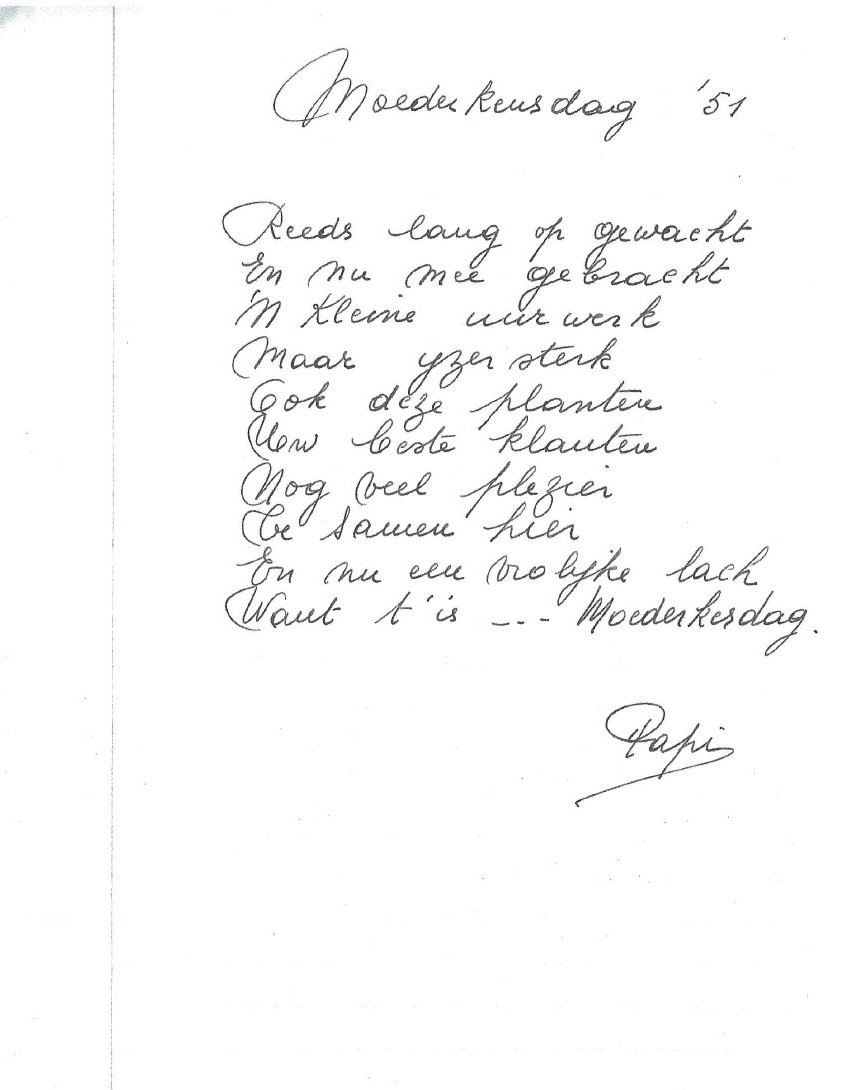 Moederkensdag '51
Reeds lang op gewacht
En nu mee gebracht
'N Kleine uurwerk
Maar yzersterk
Ook deze planten
Uw beste klanten
Nog veel plezier
Te samen hier
En nu een vrolijke lach
Want t'is --- Moederkesdag.
Papi